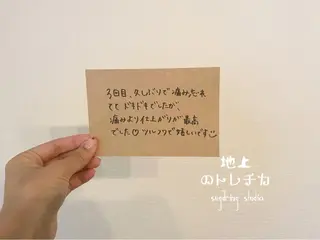 3回目、久しぶりで痛み忘れ
ててドキドキでしたが、
痛みより仕上がりが最高
でした♡ツルツルで嬉しいです☺
地上
のトレチカ
sugaring studio